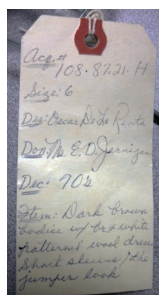 Acq.#
108.87.21.H
Size: 6
Des: Oscar De La Renta
Don: Ms. E. D. Jernigan
Dec. 70s
Item: Dark Brown
bodice w/ brown white
patterned wool dress
short sleeves / the
jumper look